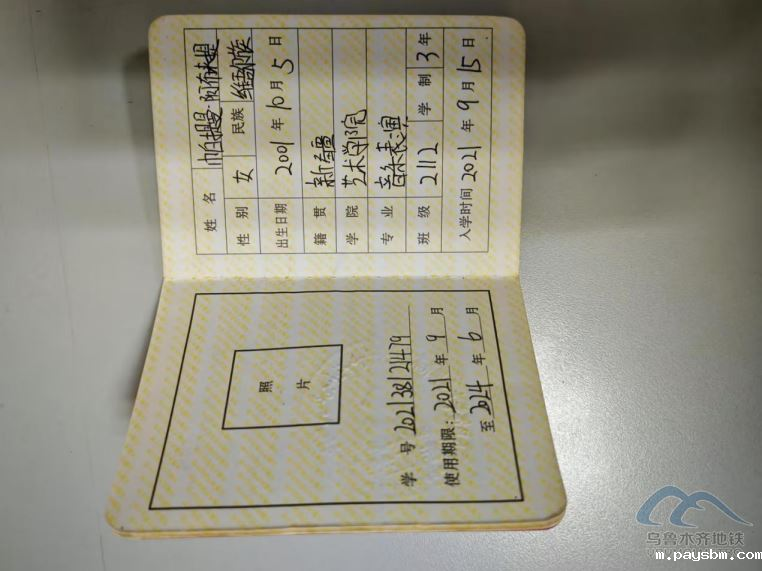 姓名 帕提曼·阿布来提
性别 女 民族 维吾尔族
出生日期 2001年10月5日
籍贯 新疆
学院 艺术学院
专业 音乐表演
班级 2112 学制 3年
入学时间 2021年9月15日
照片
学号 20213812479
使用期限：2021年9月
至2024年6月
乌鲁木齐地铁
m.paysbm.com